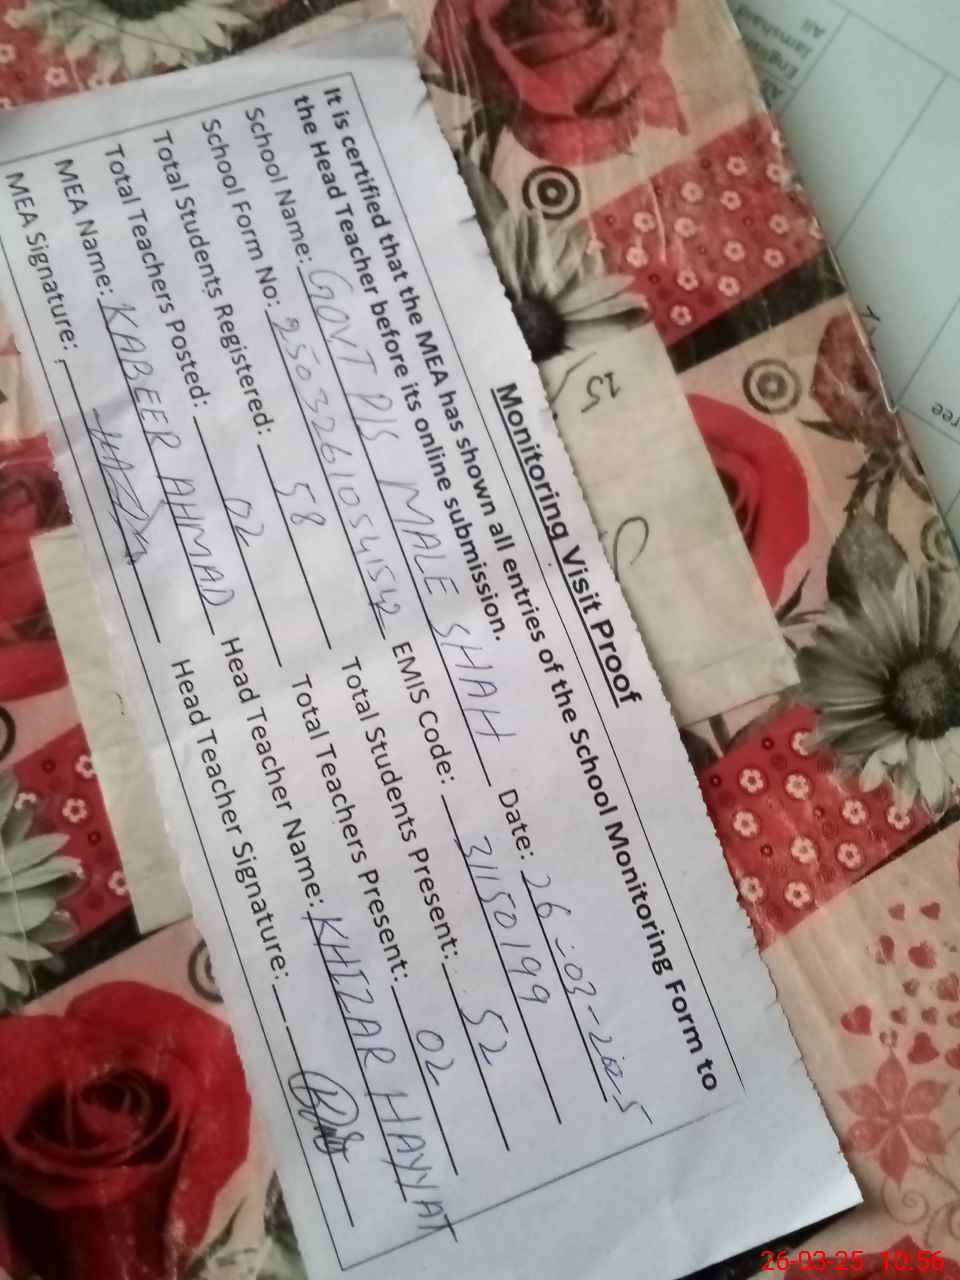 Monitoring Visit Proof
It is certified that the MEA has shown all entries of the School Monitoring Form to
the Head Teacher before its online submission.
School Name: GOVT P/S MALE SHAH Date: 26-03-2025
School Form No: 25032610541542 EMIS Code: 31150199
Total Students Registered: 58 Total Students Present: 52
Total Teachers Posted: 02 Total Teachers Present: 02
MEA Name: KABEER AHMAD Head Teacher Name: KHIZAR HAYYAT
MEA Signature: Head Teacher Signature:
Jamshaid
Ali
26-03-25 10:56